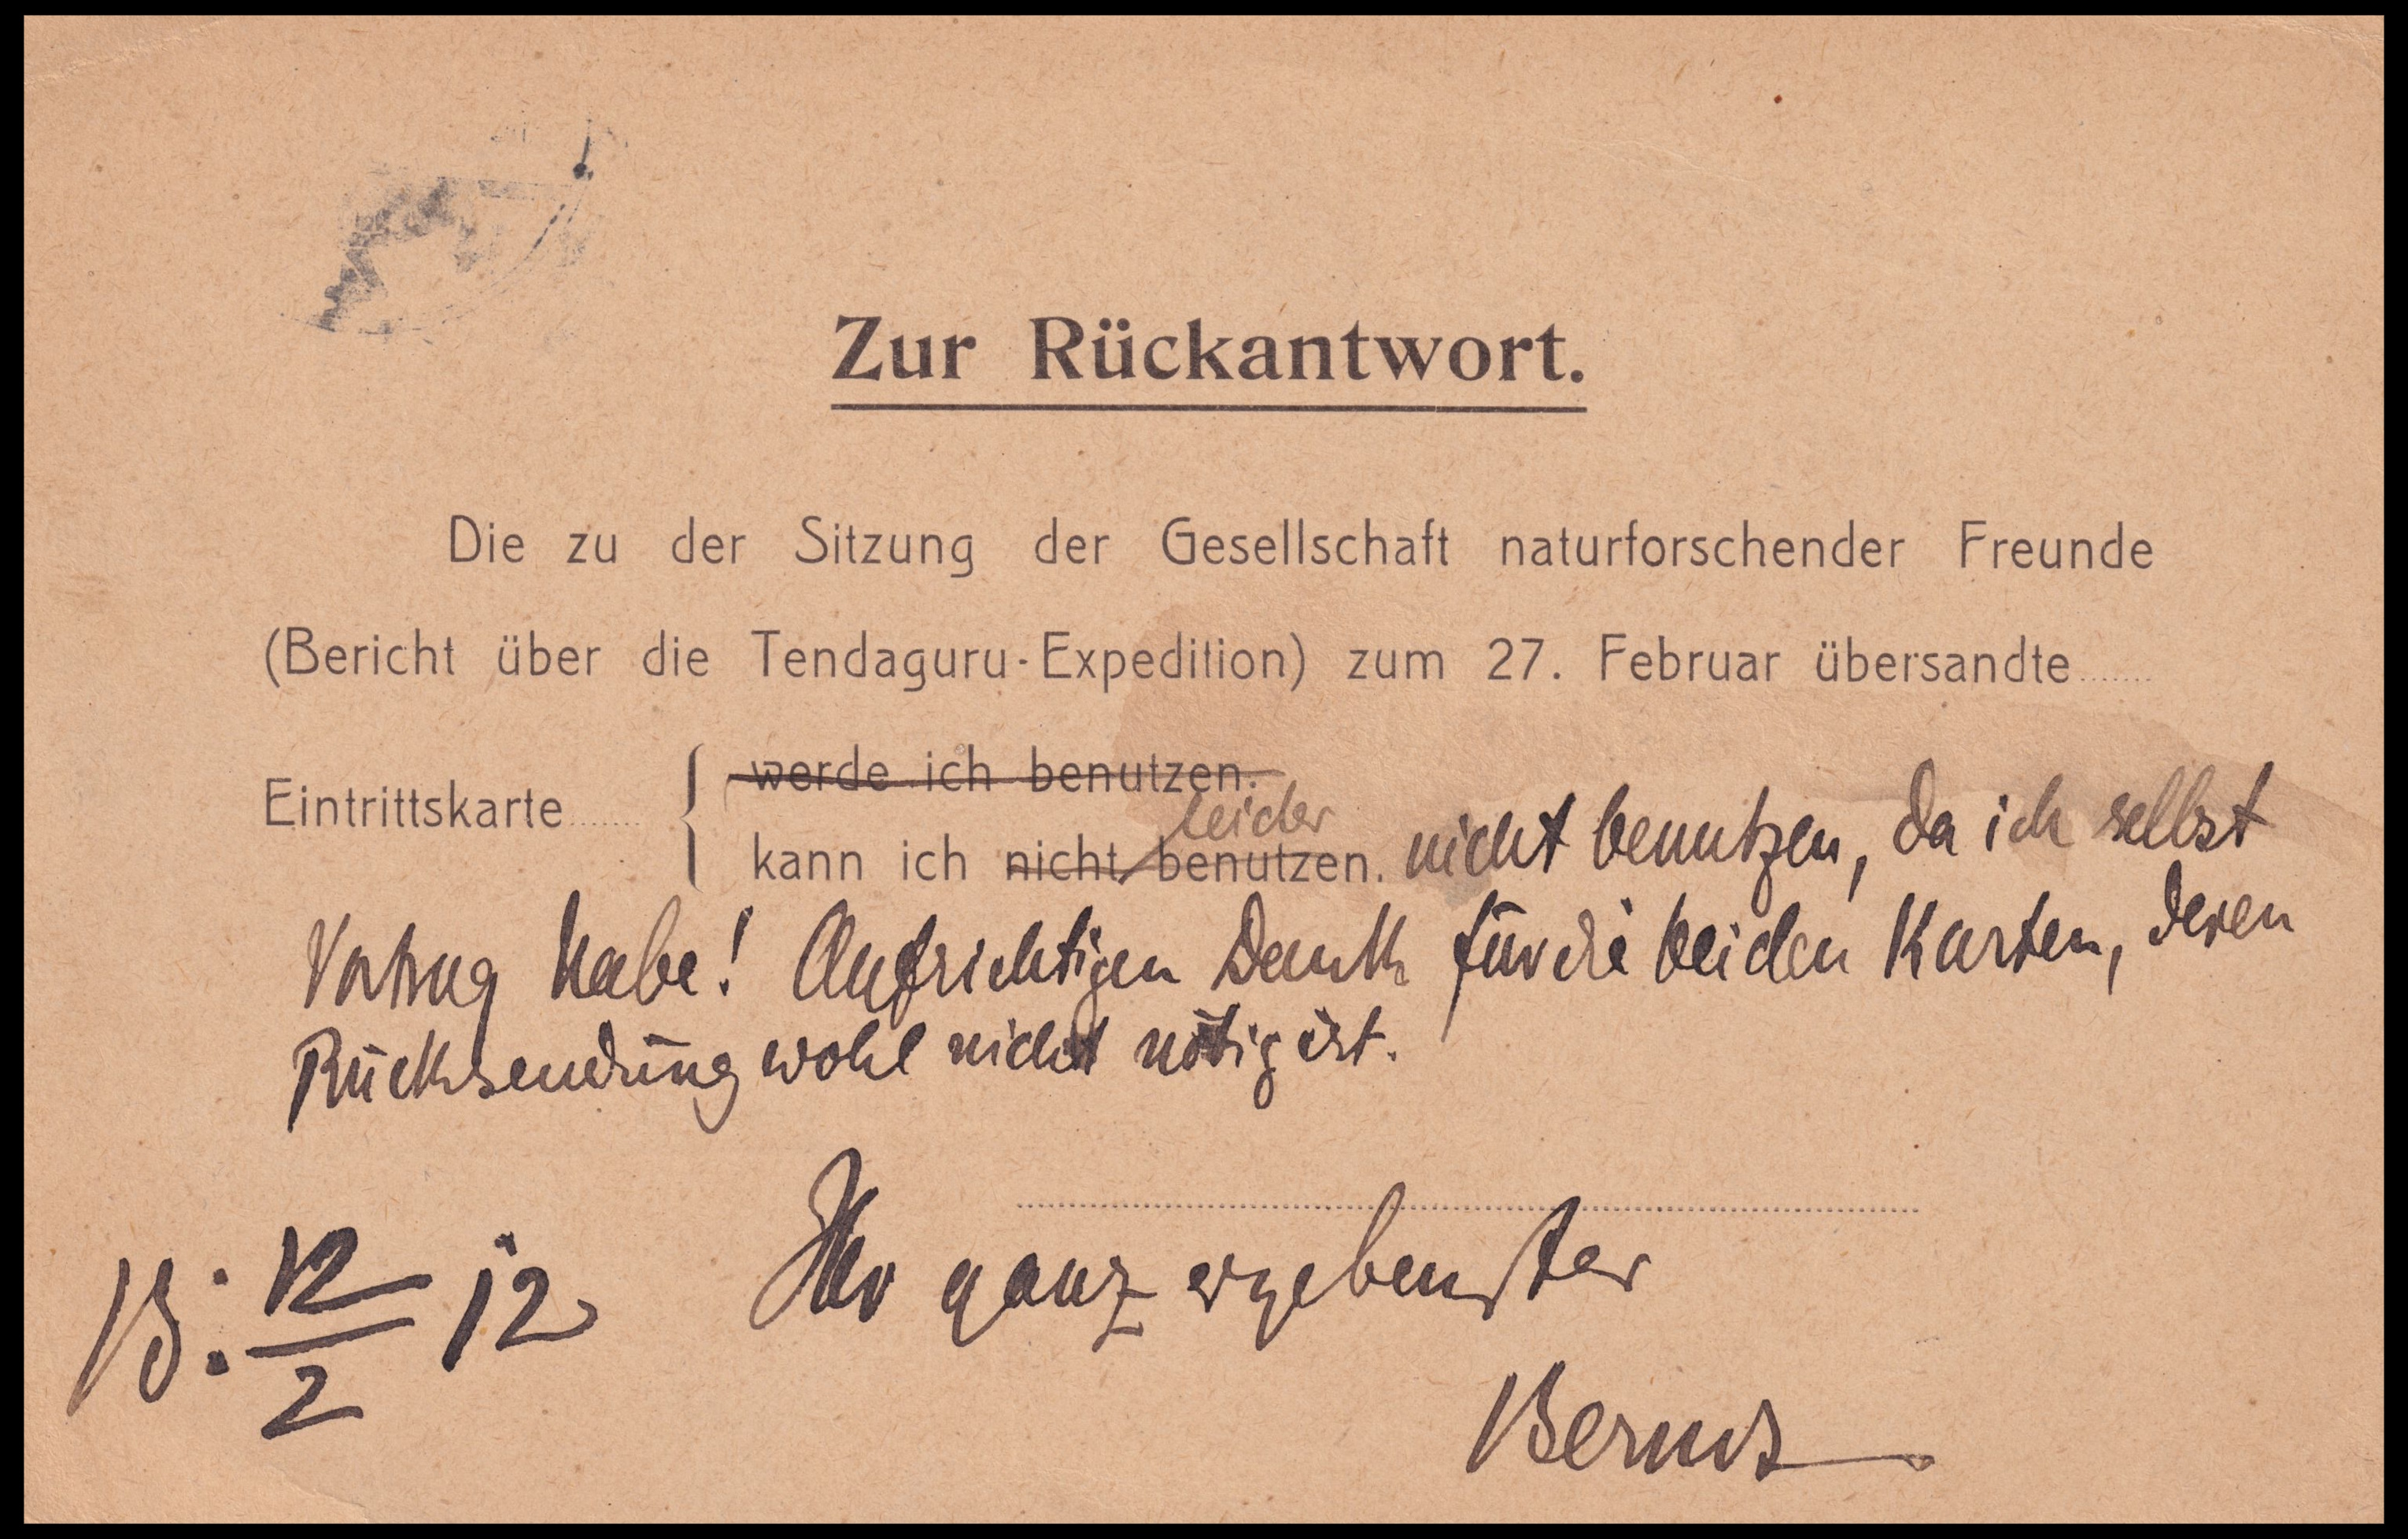 Zur Rückantwort.
Die zu der Sitzung der Gesellschaft naturforschender Freunde
(Bericht über die Tendaguru-Expedition) zum 27. Februar übersandte.......
Eintrittskarte.......
werde ich benutzen.
leider
kann ich nicht benutzen. nicht benutzen, da ich selbst
Vortrag habe! Aufrichtigen Dank für die beiden Karten, deren
Rücksendung wohl nicht nötig ist.
B: 12/2 12
Ihr ganz ergebenster